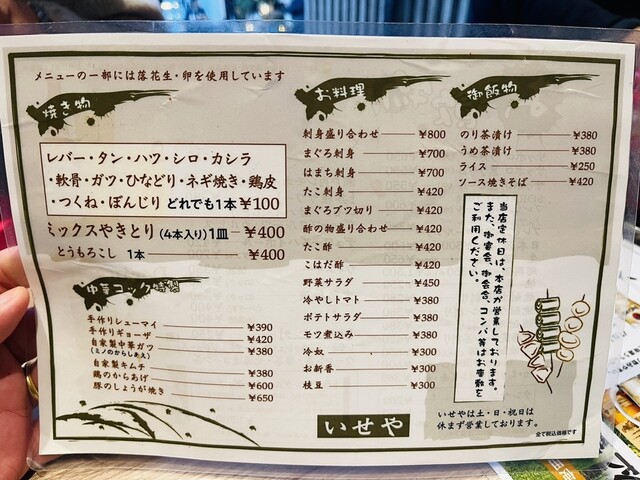 メニューの一部には落花生・卵を使用しています
焼き物
レバー・タン・ハツ・シロ・カシラ
・軟骨・ガツ・ひなどり・ネギ焼き・鶏皮
・つくね・ぼんじり どれでも1本 ¥100
ミックスやきとり(4本入り)1皿 ¥400
とうもろこし 1本 ¥400
中華コック特製
手作りシューマイ ¥390
手作りギョーザ ¥420
自家製中華ガツ ¥380
(ミノのからしあえ)
自家製キムチ ¥380
鶏のからあげ ¥600
豚のしょうが焼き ¥650
お料理
刺身盛り合わせ ¥800
まぐろ刺身 ¥700
はまち刺身 ¥700
たこ刺身 ¥420
まぐろブツ切り ¥420
酢の物盛り合わせ ¥420
たこ酢 ¥420
こはだ酢 ¥420
野菜サラダ ¥450
冷やしトマト ¥380
ポテトサラダ ¥380
モツ煮込み ¥380
冷奴 ¥300
お新香 ¥300
枝豆 ¥300
いせや
御飯物
のり茶漬け ¥380
うめ茶漬け ¥380
ライス ¥250
ソース焼きそば ¥420
当店定休日は、本店が営業しております。
また、御宴会、御会合、コンパ等はお座敷を
ご利用ください。
いせやは土・日・祝日は
休まず営業しております。
全て税込価格です